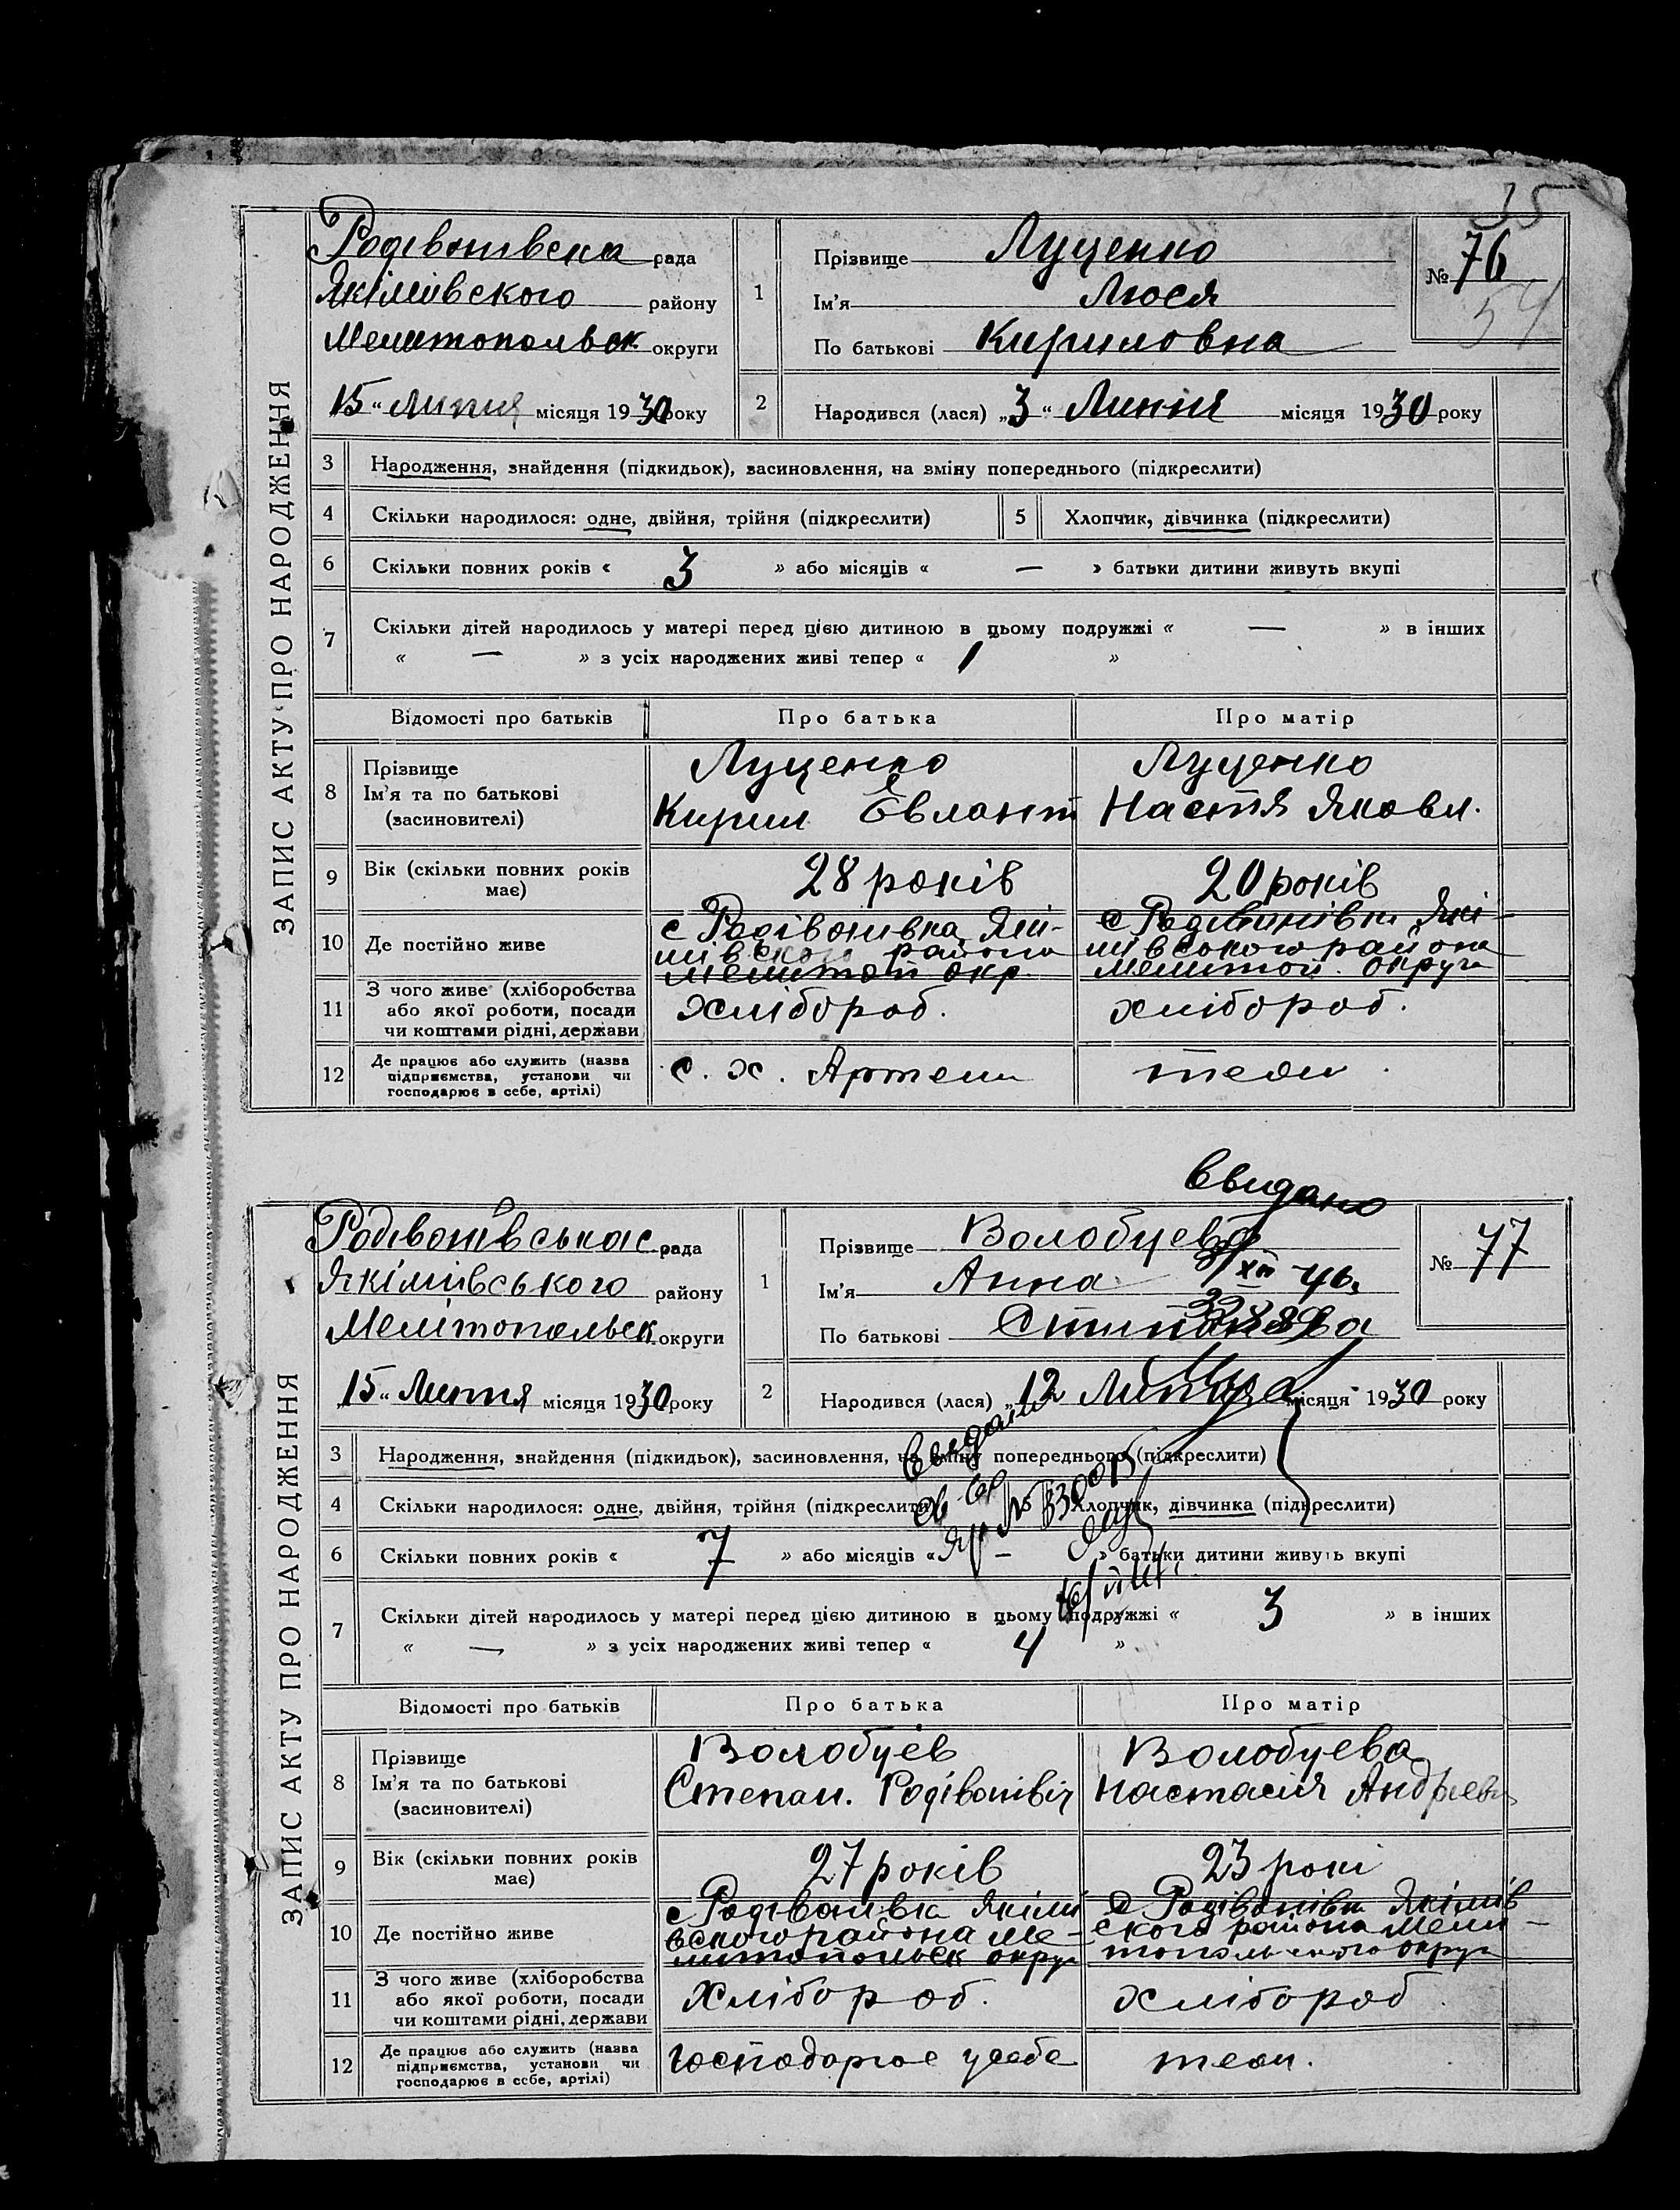 35
Родівонівска рада
Якімівского району
Мелитопольск округи
15 " Липня місяця 1930 року
1
Прізвище Луценко
Ім'я Люся
По батькові Кириловна
№ 76
54
2
Народився (лася) „3 “ Липня місяця 1930 року
ЗАПИС АКТУ ПРО НАРОДЖЕННЯ
3 Народження, знайдення (підкидьок), засиновлення, на зміну попереднього (підкреслити)
4 Скільки народилося: одне, двійня, трійня (підкреслити) 5 Хлопчик, дівчинка (підкреслити)
6 Скільки повних років « 3 » або місяців « — » батьки дитини живуть вкупі
7 Скільки дітей народилось у матері перед цією дитиною в цьому подружжі « — » в інших
« — » з усіх народжених живі тепер « 1 »
Відомості про батьків Про батька Про матір
8 Прізвище
Ім'я та по батькові
(засиновителі)
Луценко
Кирил Євлант
Луценко
Настя Яковл.
9 Вік (скільки повних років
має)
28 років
20 років
10 Де постійно живе
с Родівонівка Які-
мівского района
Мелитоп окр.
с Родівонівки Які-
мівського района
Мелитоп. округи
11 З чого живе (хліборобства
або якої роботи, посади
чи коштами рідні, держави
хлібороб.
хлібороб.
12 Де працює або служить (назва
підприємства, установи чи
господарює в себе, артілі)
с. х. Артели
теж.
ЗАПИС АКТУ ПРО НАРОДЖЕННЯ
Родівонівська рада
Якімівського району
Мелітопольск округи
„15“ Липня місяця 1930 року
1
Прізвище Волобуева
Ім'я Анна
По батькові
№ 77
2
Народився (лася) „12 Липня місяця 1930 року
3 Народження, знайдення (підкидьок), засиновлення, на зміну попереднього (підкреслити)
4 Скільки народилося: одне, двійня, трійня (підкреслити) 5 Хлопчик, дівчинка (підкреслити)
6 Скільки повних років « 7 » або місяців « — » батьки дитини живуть вкупі
7 Скільки дітей народилось у матері перед цією дитиною в цьому подружжі « 3 » в інших
« — » з усіх народжених живі тепер « 4 »
Відомості про батьків Про батька Про матір
8 Прізвище
Ім'я та по батькові
(засиновителі)
Волобуєв
Степан. Родівонівіч
Волобуева
Настасія Андрієвн
9 Вік (скільки повних років
має)
27 років
23 рокі
10 Де постійно живе
с Родівонівка Якімі
вского района Ме-
литопольск округ
с Родівонівки Якімів
ского района Мели-
топольского округ
11 З чого живе (хліборобства
або якої роботи, посади
чи коштами рідні, держави
Хлібороб.
хлібороб
12 Де працює або служить (назва
підприємства, установи чи
господарює в себе, артілі)
Господарює у себе
теж.